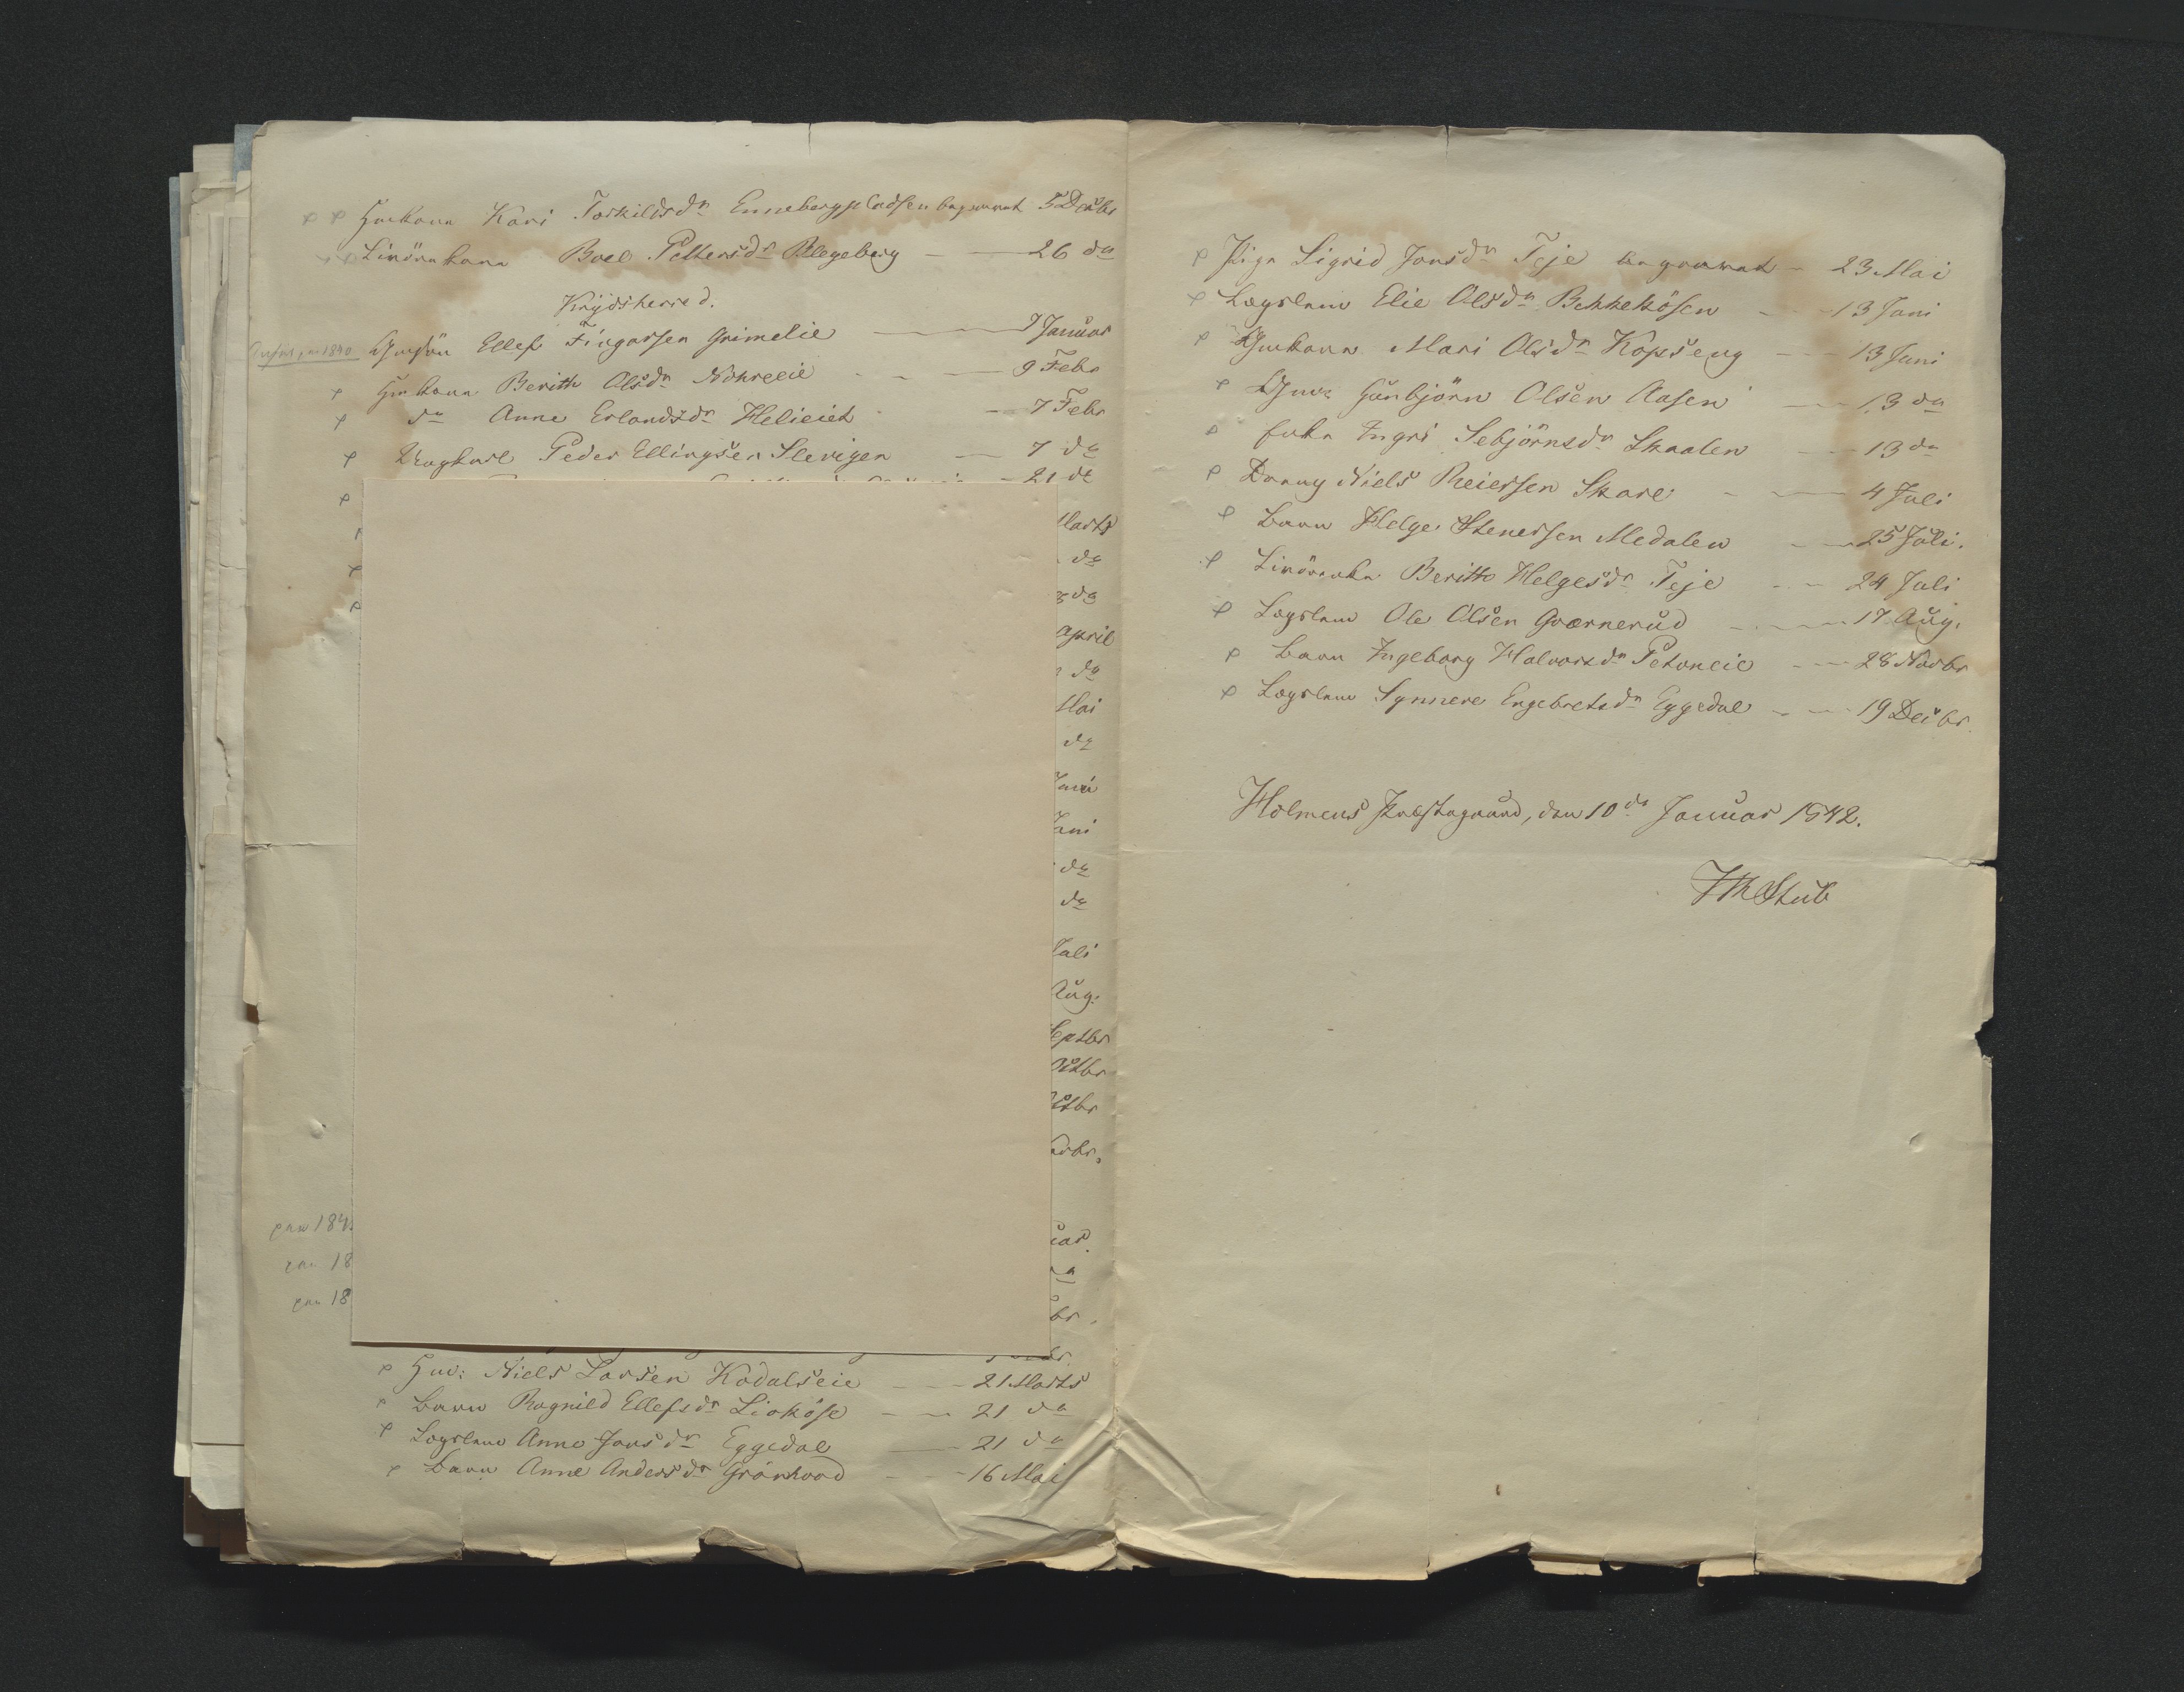 Huskone Kari Torkildsdr Ennebergpladsen begravet 5 Decbr
Boel Pettersdr Blegeberg - 26 do
Krydsherred.
Ellef Fingarsen Grimelie - 7 Januar
Huskone Berith Olsdr Nohreeie - 9 Febr
do Anne Erlandsdr Helieiet - 7 Febr
Ungkarl Peder Ellingsen Slevigen - 7 do
21 do
Marts
do
do
April
do
Mai
do
Juni
Juni
do
do
Juli
Aug.
Septbr
Octbr
Octbr
pau 184
pau 18
pau 18
Huus: Niels Larsen Kadalseie - 21 Marts
Barn Ragnild Ellefsdr Lioköse - 21 do
Lægslem Anne Jonsdr Eggedal - 21 do
Barn Anne Andersdr Grönhovd - 16 Mai
Pige Sigrid Jonsdr Teje begravet - 23 Mai
Lægslem Elie Olsdr Bekkekösen - 13 Juni
Gmkone Mari Olsdr Kopseng - 13 Juni
Gunbjörn Olsen Aasen - 13 do
Ingri Sebjörnsdr Skaalen - 13 do
Dreng Niels Reiersen Skare - 4 Juli
Barn Helge Stenersen Medalen - 25 Juli.
Berith Helgesdr Teje - 24 Juli
Lægslem Ole Olsen Gværnerud - 17 Aug.
Barn Ingeborg Halvorsdr Petoneie - 28 Novbr
Lægslem Synnere Engebretsdr Eggedal - 19 Decbr.
Holmens Præstegaard, den 10de Januar 1842.
JMStub